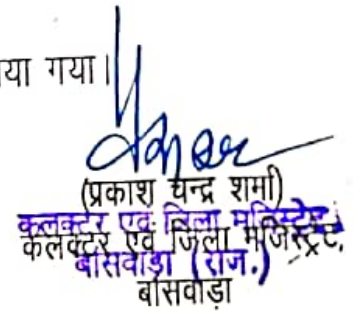 या गया।
(प्रकाश चन्द्र शर्मा)
कलक्टर एवं जिला मजिस्ट्रेट
कलेक्टर एवं जिला मजिस्ट्रेट,
बांसवाड़ा (राज.)
बांसवाड़ा